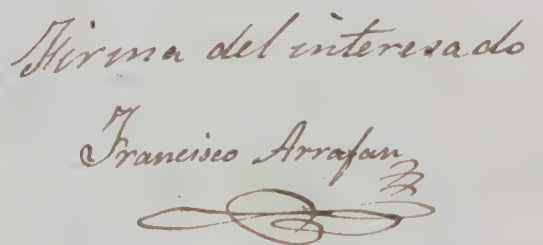 Firma del interesado
Francisco Arrafan